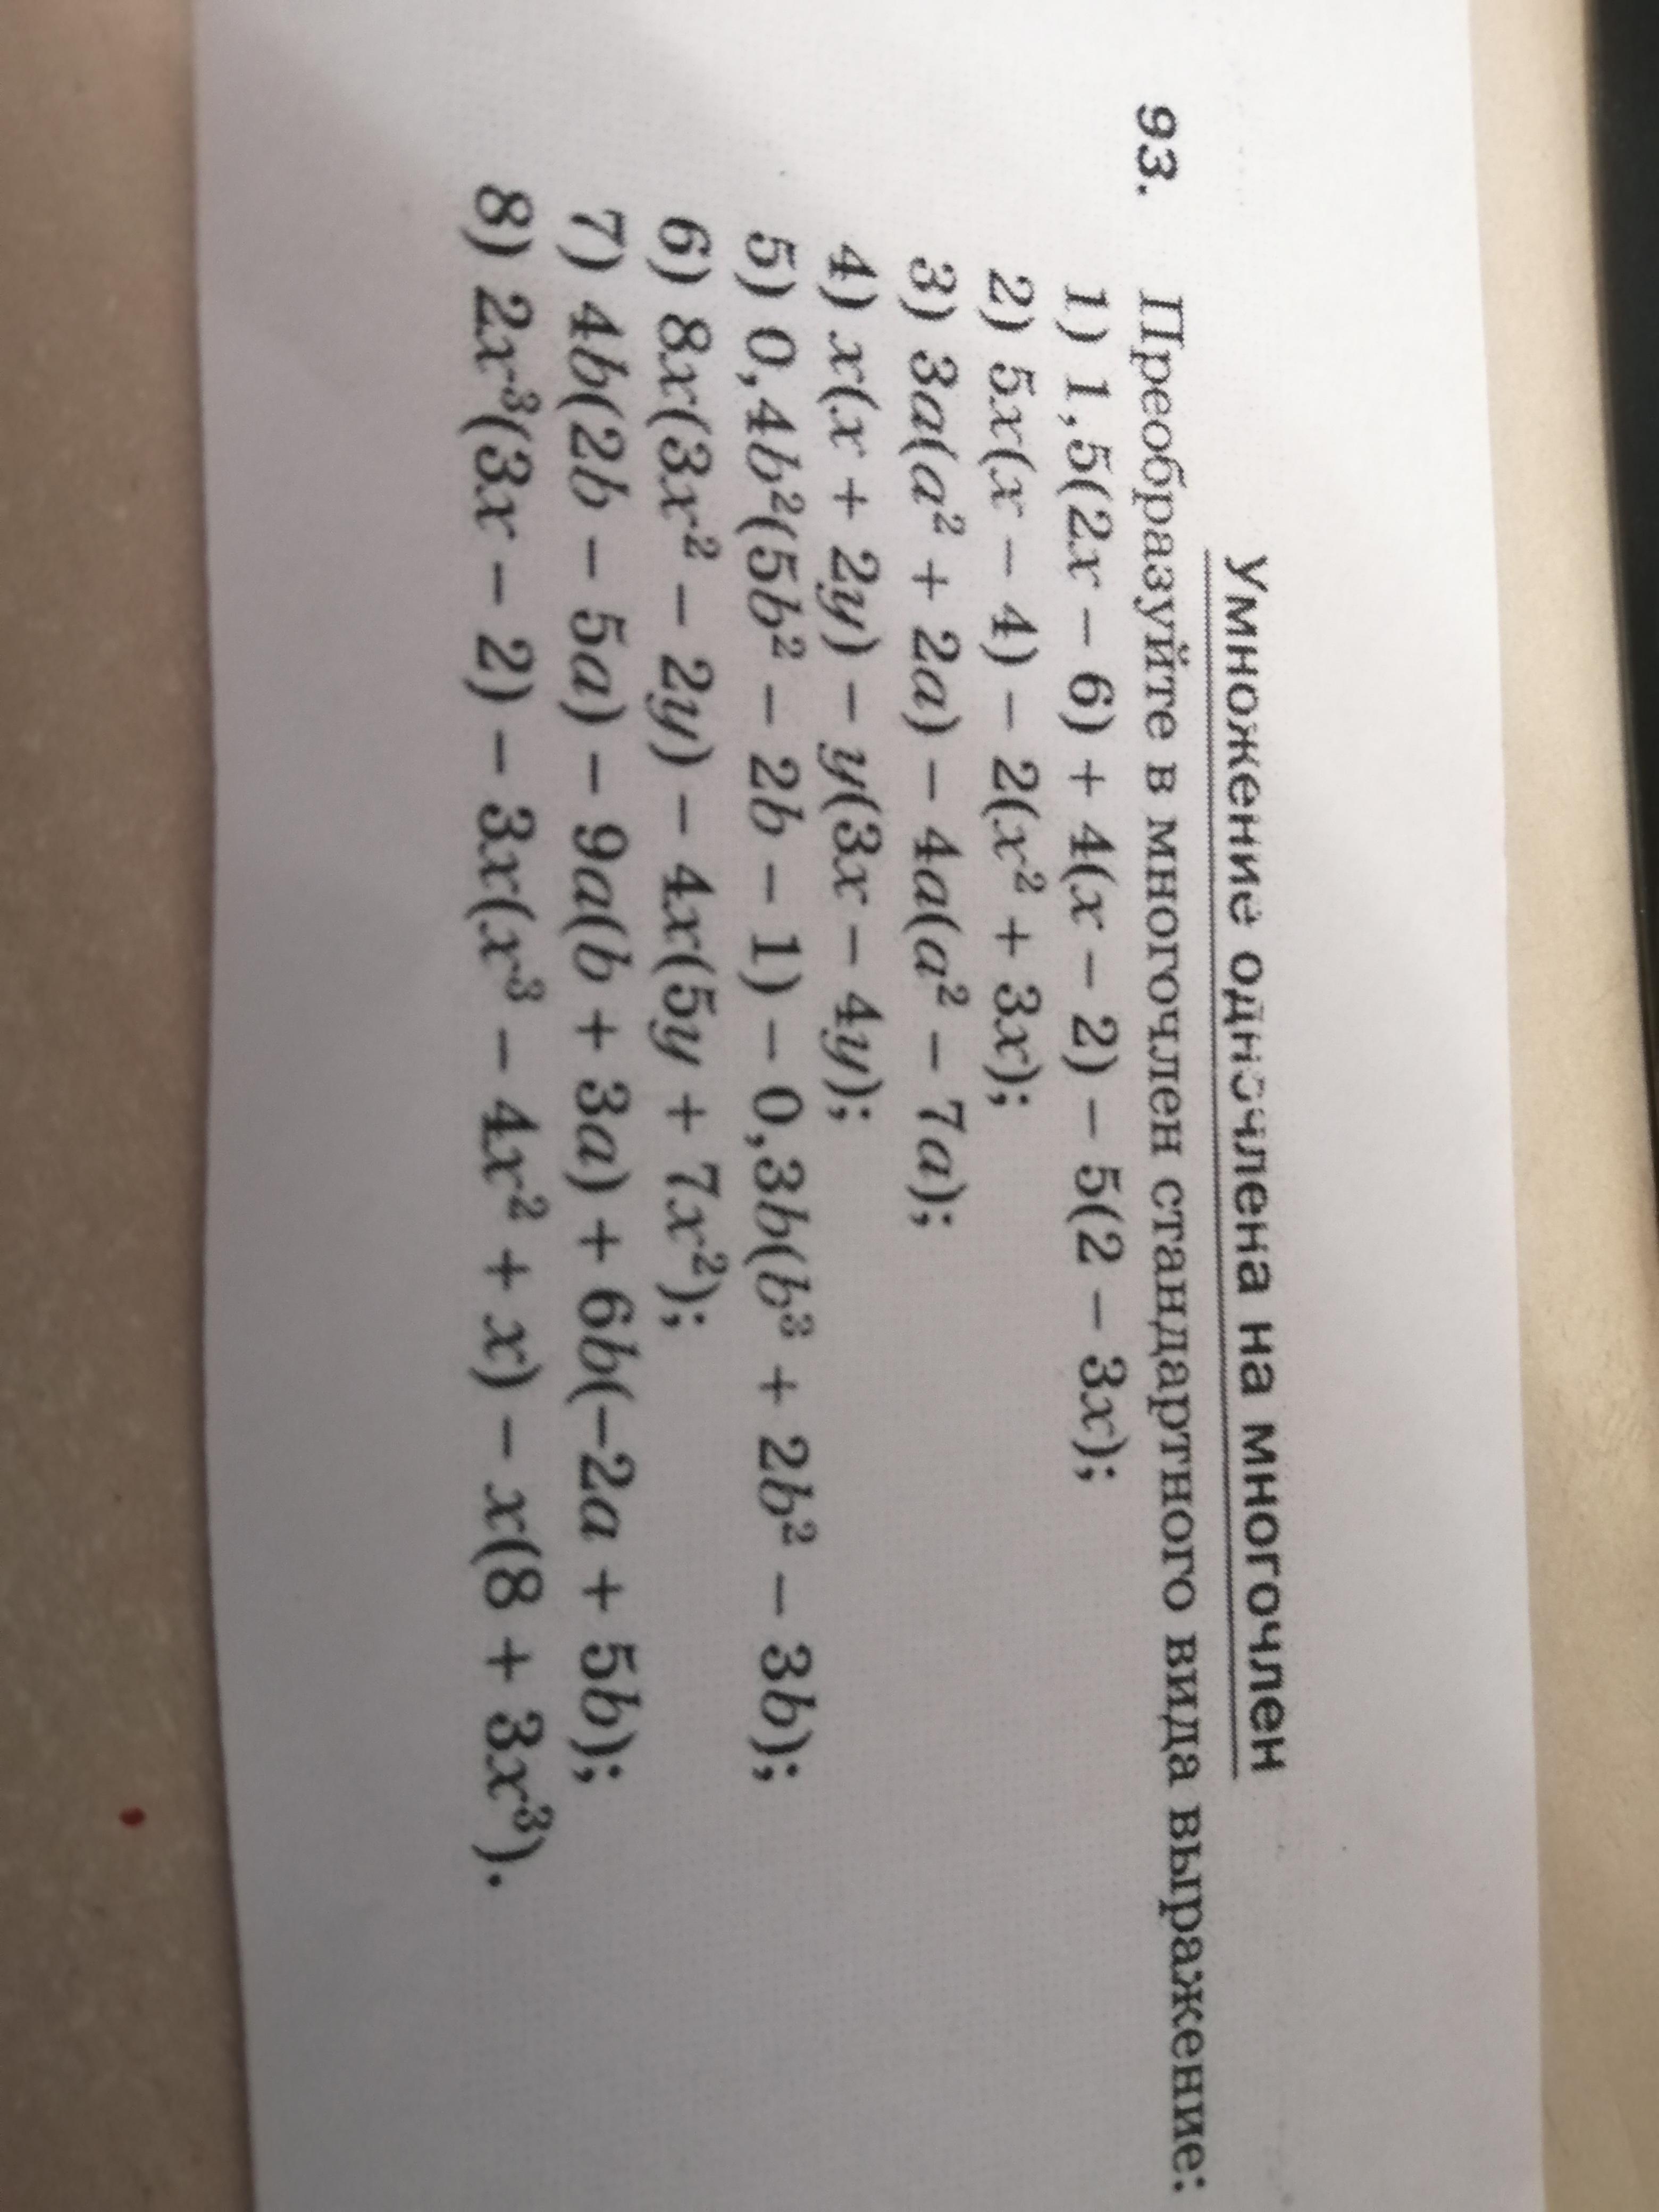 Умножение одночлена на многочлен
93. Преобразуйте в многочлен стандартного вида выражение:
1) 1,5(2x – 6) + 4(x – 2) – 5(2 – 3x);
2) 5x(x – 4) – 2(x² + 3x);
3) 3a(a² + 2a) – 4a(a² – 7a);
4) x(x + 2y) – y(3x – 4y);
5) 0,4b²(5b² – 2b – 1) – 0,3b(b³ + 2b² – 3b);
6) 8x(3x² – 2y) – 4x(5y + 7x²);
7) 4b(2b – 5a) – 9a(b + 3a) + 6b(–2a + 5b);
8) 2x³(3x – 2) – 3x(x³ – 4x² + x) – x(8 + 3x³).